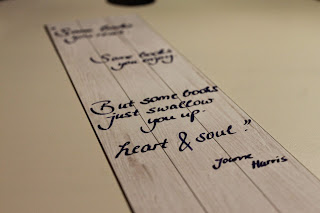 "Some books
you
Some books
you enjoy
But some books
just swallow
you up.
heart & soul."
Joanne
Harris